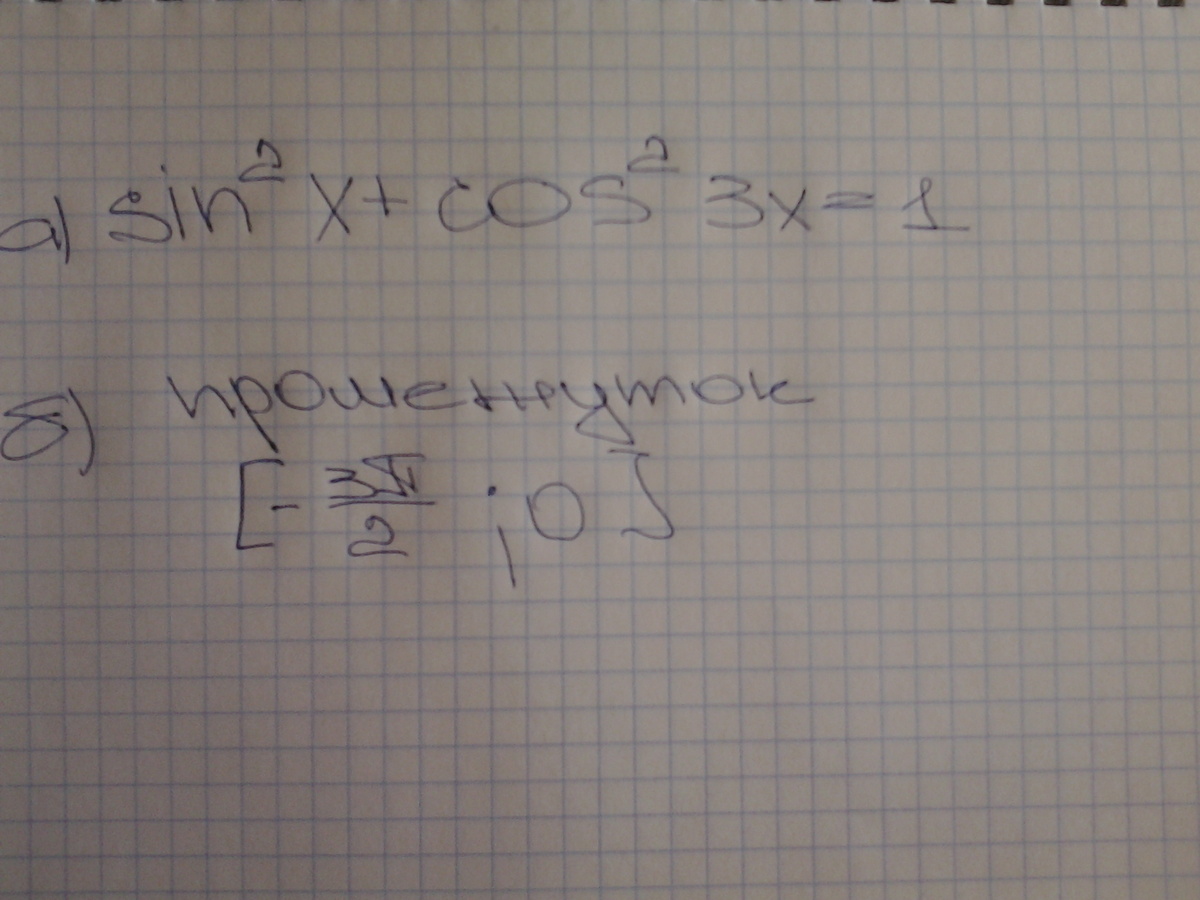 а) sin² x + cos² 3x = 1
б) промежуток
[- 3π/2 ; 0]